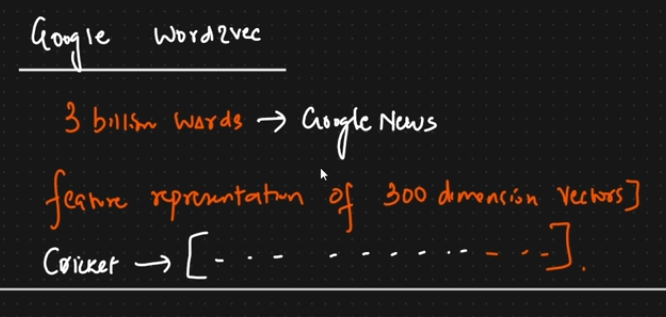 Google Word2vec
3 billion words → Google News
feature representation of 300 dimension vectors]
Cricket → [- - - - - - - - - - - - -].